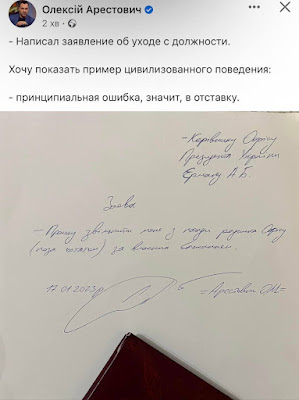 Олексій Арестович
2 хв
- Написал заявление об уходе с должности.
Хочу показать пример цивилизованного поведения:
- принципиальная ошибка, значит, в отставку.
- Керівнику Офісу
Президента України
Єрмаку А.Б.
Заява
- Прошу звільнити мене з посади радника Офісу
(поза штатом) за власним бажанням.
17.01.2023р
= Арестович О.М. =